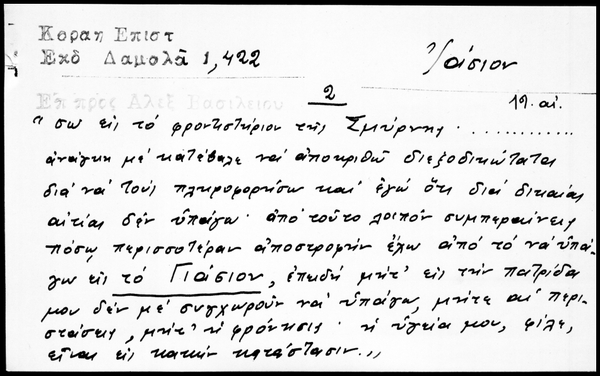 Κοραη Επιστ
Εκδ Δαμαλᾶ 1,422
Ἰάσιον
Επ προς Αλεξ Βασιλειου
2
19. αἰ.
"σω εἰς τό φροντιστήριον τῆς Σμύρνης . . . . . . . . . . . .
ἀνάγκη μέ κατέβαλε νά ἀποκριθῶ διεξοδικώτατα
διά νά τούς πληροφορήσω καί ἐγώ ὅτι διά δικαίας
αἰτίας δέν ὑπάγω· ἀπό τοῦτο λοιπόν συμπεραίνεις
πόσην περισσοτέραν ἀποστροφήν ἔχω ἀπό τό νά ὑπά-
γω εἰς τό Γιάσιον, ἐπειδή μήτ' εἰς τήν πατρίδα
μου δέν μέ συγχωροῦν νά ὑπάγω, μήτε αἱ περι-
στάσεις, μήτ' ἡ φρόνησις· ἡ ὑγεία μου, φίλε,
εἶναι εἰς κακήν κατάστασιν..,,